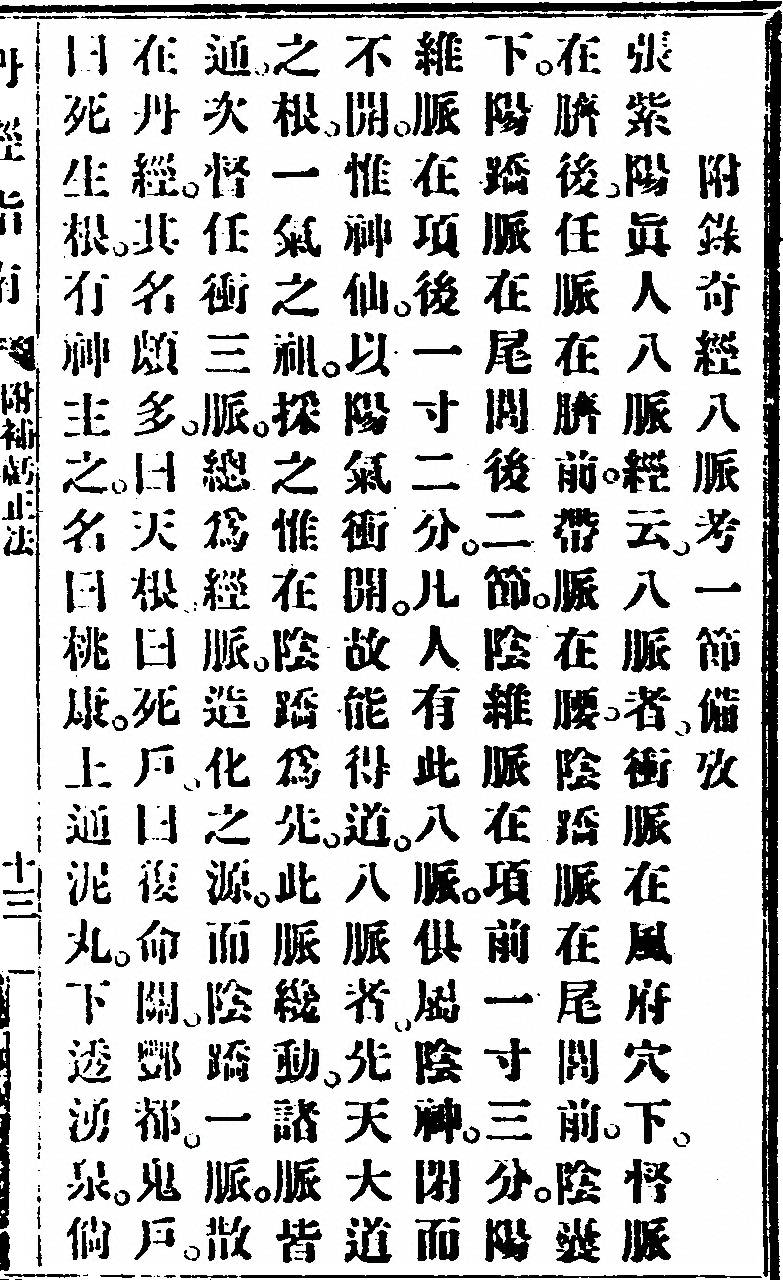 附錄奇經八脈考一節備攷
張紫陽眞人八脈經云。八脈者。衝脈在風府穴下。督脈
在臍後。任脈在臍前。帶脈在腰。陰蹻脈在尾閭前。陰囊
下。陽蹻脈在尾閭後二節。陰維脈在項前一寸三分。陽
維脈在項後一寸二分。凡人有此八脈。俱屬陰神。閉而
不開。惟神仙。以陽氣衝開。故能得道。八脈者。先天大道
之根。一氣之祖。採之惟在陰蹻爲先。此脈纔動。諸脈皆
通。次督任衝三脈。總爲經脈。造化之源。而陰蹻一脈。散
在丹經。其名頗多。曰天根。曰死戶。曰復命關。酆都。鬼戶。
曰死生根。有神主之。名曰桃康。上通泥丸。下透湧泉。倘
丹經指南
附補虧正法
十三